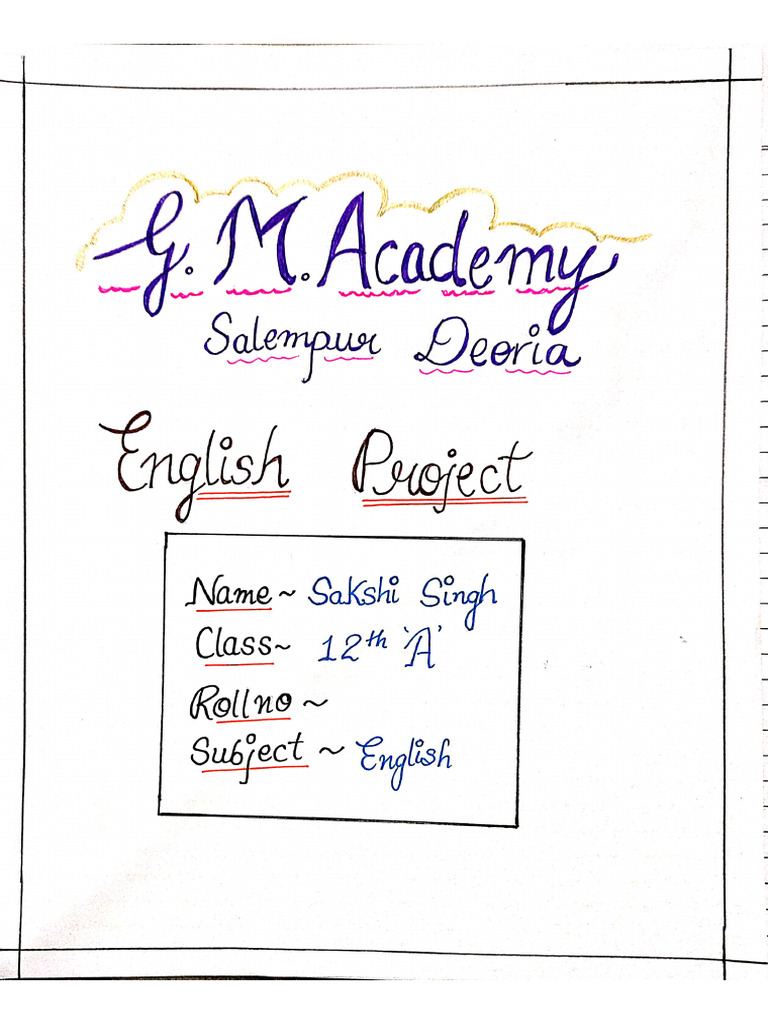 G. M. Academy
Salempur Deoria
English Project
Name ~ Sakshi Singh
Class ~ 12th 'A'
Rollno ~
Subject ~ English